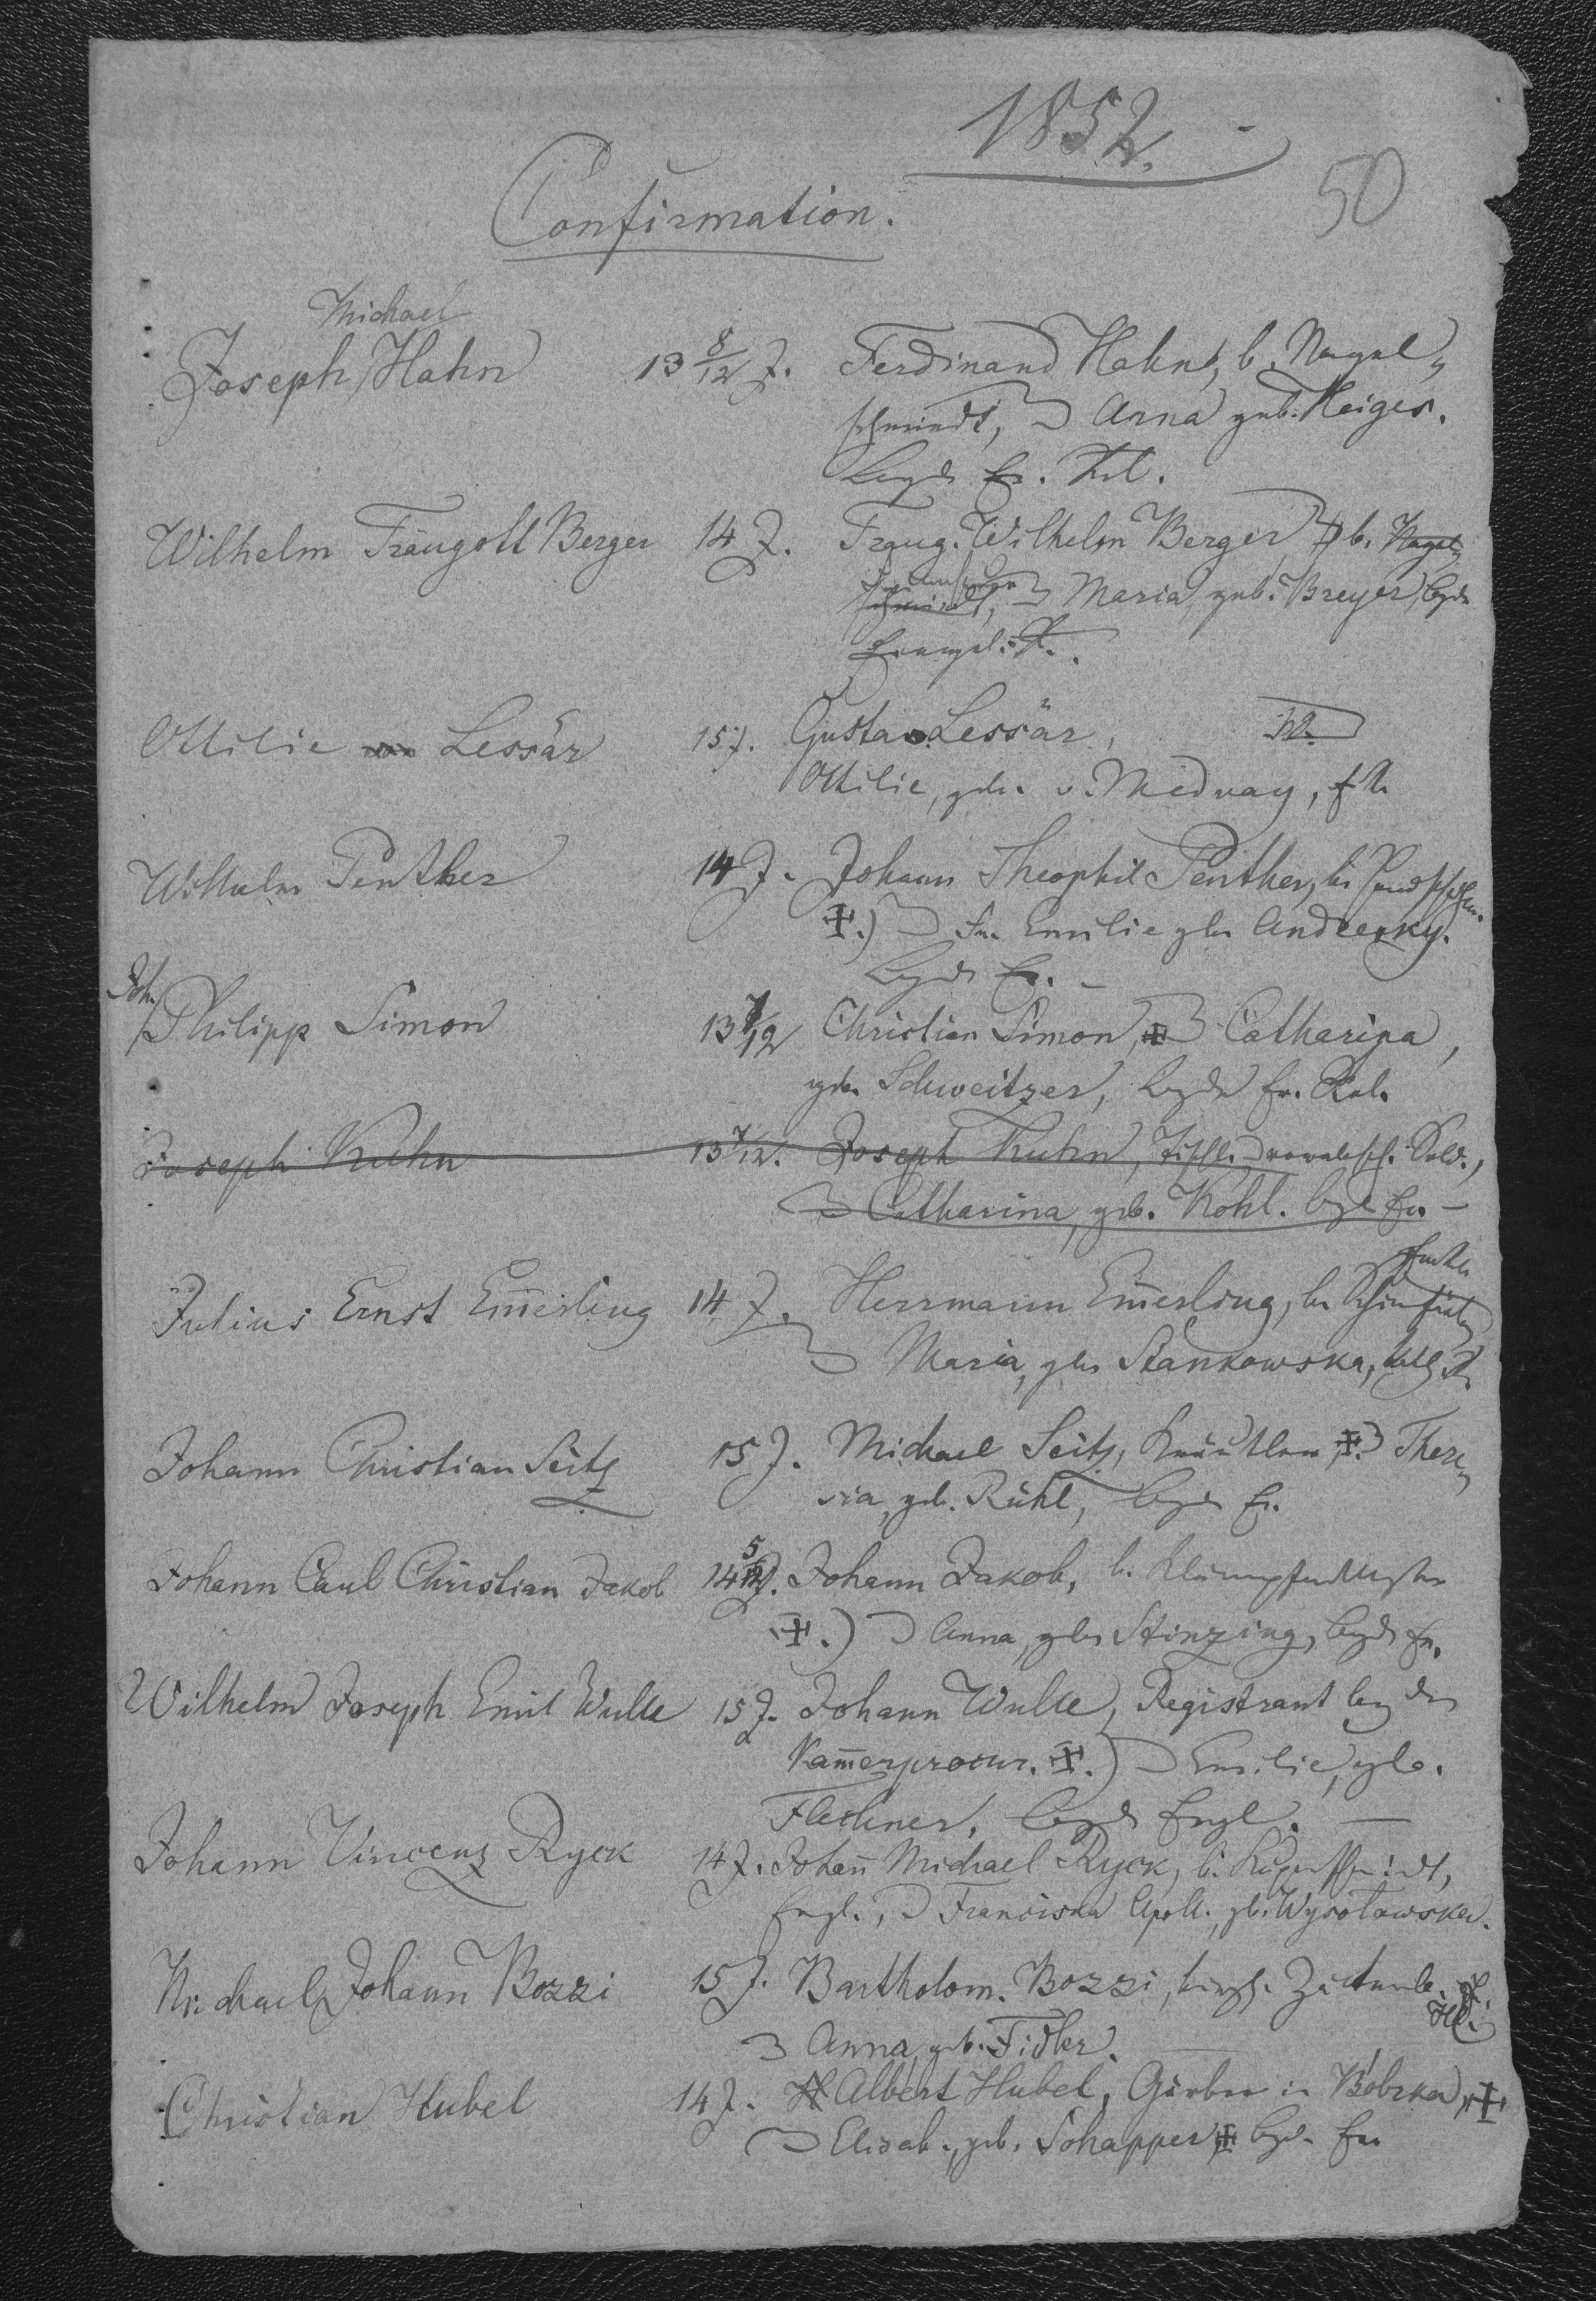 1852.
50
Confirmation.
Michael
Joseph Hahn 13 8/12 J. Ferdinand Hahn, b. Nagel=
schmidt, Anna geb. Heiger.
beyde Ev.
Wilhelm Traugott Berger 14 J. Traug. Wilhelm Berger b. Nagel=
schmidt, Maria, geb. Breyer, beyde
Evangel.
Ottilie von Lessär 15 J. Gustav Lessär,
Ottilie, geb. v. Medvay,
Wilhelm Penther 14 J. Johann Theophil Penther, b.
✝.) Fr. Emilie geb. Andrenky.
beyde Ev.
Joh.
Philipp Simon 13 7/12 Christian Simon, ✝ Catharina,
geb. Schweitzer, beyde Ev.
Joseph Kuhn 13 7/12. Joseph Kuhn, Tischl.
Catharina, geb. Kohl. beyde Ev. —
Julius Ernst Em̄erling 14 J. Herrmann Em̄erling, b.
Maria, geb. Stankowska,
Johann Christian Seitz 15 J. Michael Seitz, Kräutler ✝. There=
sia, geb. Rühl, beyde Ev.
Johann Carl Christian Jakob 14 5/12 J. Johann Jakob, b. Klampfner
✝.) Anna, geb. Stinzing, beyde Ev.
Wilhelm Joseph Emil Wulle 15 J. Johann Wulle, Registrant bey der
Kam̄erprocur. ✝.) Emilie, geb.
Flechner, beyde Evgl. —
Johann Vincenz Ryck 14 J. Johan̄ Michael Ryck, b. Kupferschmidt,
Evgl., Franciska Apoll. gb. Wysotawska.
Michael Johann Bozzi 15 J. Bartholom. Bozzi,
Anna, geb. Fidler.
Christian Hubel 14 J. Albert Hubel, Gärber in Bobrka, ✝
Elisab., geb. Schapper ✝ beyd. Ev.